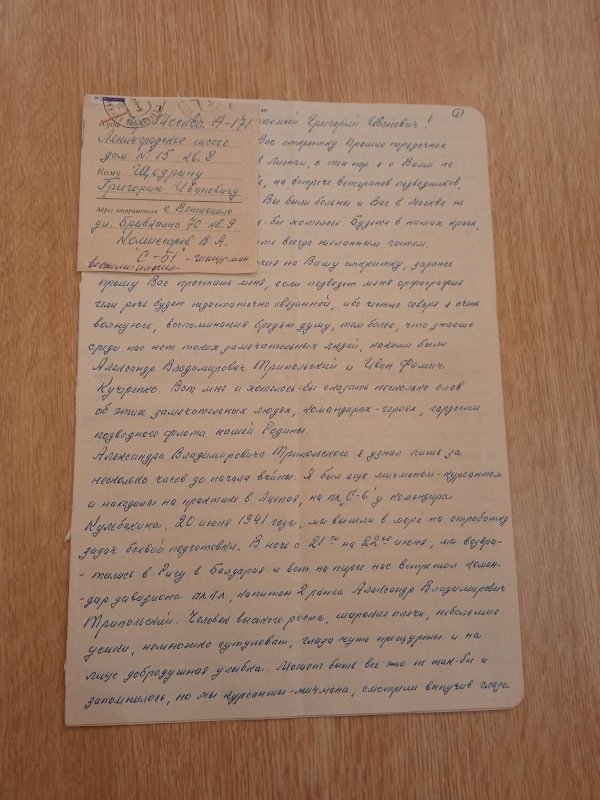 Куда г. Москва А-171
Ленинградское шоссе
дом № 15 кв. 8
Кому Щедрину
Григорию Ивановичу
Адрес отправителя г. Вентспилс
ул. 70 кв. 9
Комиссаров В. А.
"С-51" - штурман
воспоминания
1
Григорий Иванович!
Вас открытку. Прошло порядочное
с тех пор я с Вами не
на встрече ветеранов подводников,
Вы были больны и Вас в Москве не
бы хотелось. Будете в наших краях,
всегда желанным гостем.
на Вашу открытку, заранее
прошу Вас простить меня, если подведет меня орфография
или речь будет недостаточно связанной, ибо честно говоря я очень
волнуюсь, воспоминания бредят душу, тем более, что знаешь
среди нас нет таких замечательных людей, какими были
Александр Владимирович Трипольский и Иван Фомич
Кучеренко. Вот мне и хотелось-бы сказать несколько слов
об этих замечательных людях, командирах-героях, гордости
подводного флота нашей Родины.
Александра Владимировича Трипольского я узнал лишь за
несколько часов до начала войны. Я был еще мичманом-курсантом
и находился на практике в Лиепая, на пл. "С-6" у командира
Кульбакина. 20 июня 1941 года, мы вышли в море на отработку
задач боевой подготовки. В ночь с 21го на 22ое июня, мы возвра-
-тились в Ригу в Болдерая и вот на пирсе нас встретил коман-
-дир дивизиона пл.пл., капитан 2 ранга Александр Владимирович
Трипольский. Человек высокого роста, широкие плечи, небольшие
усики, немножко сутуловат, глаза чуть прищурены и на
лице добродушная улыбка. Может быть все это не так-бы и
запомнилось, но мы курсанты-мичмана, смотрели выпучив глаза